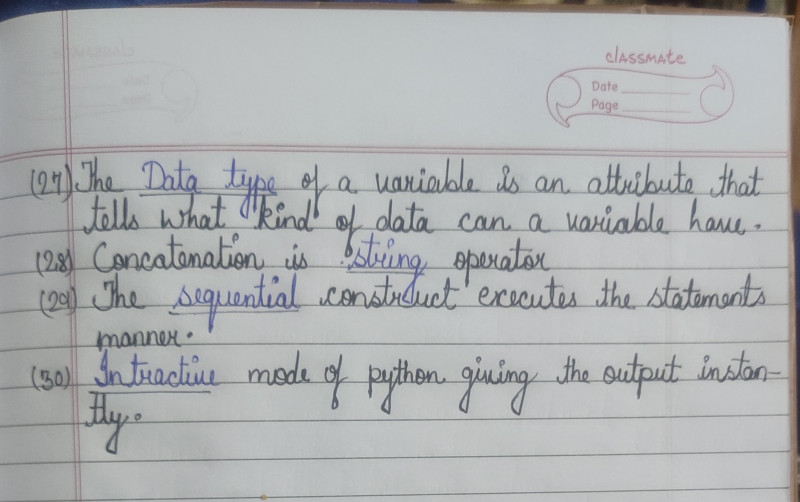 classmate
Date
Page
(27) The Data type of a variable is an attribute that
tells what kind of data can a variable have.
(28) Concatenation is string operator
(29) The sequential construct executes the statements
manner.
(30) Intractive mode of python giving the output instan-
tly.